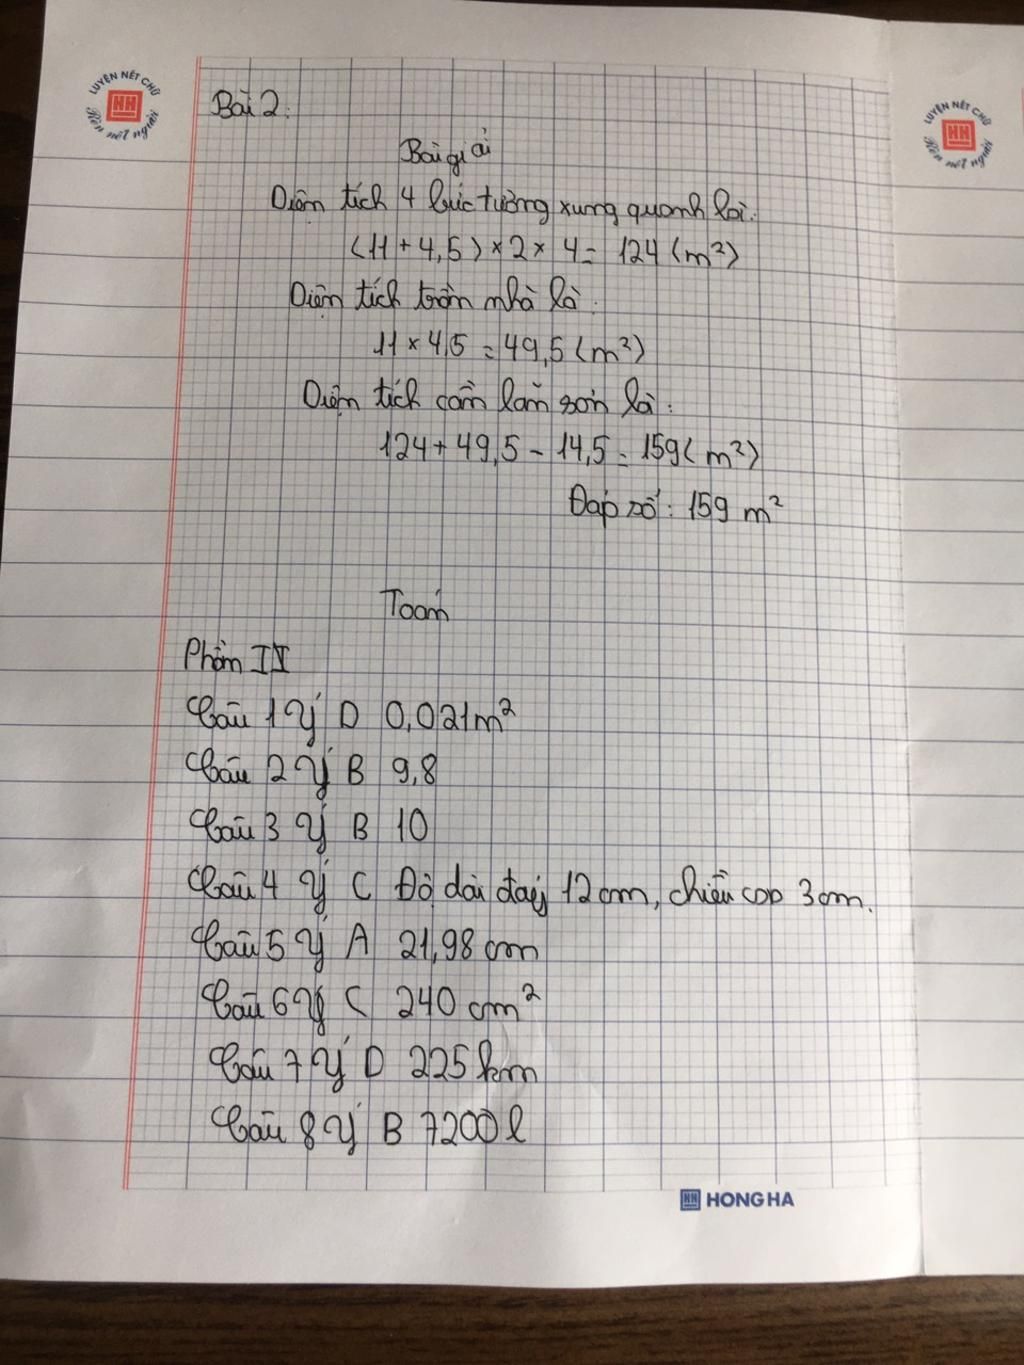 LUYỆN NẾT CHỮ
HH
Rèn nết người
LUYỆN NẾT CHỮ
HH
Rèn nết người
Bài 2:
Bài giải
Diện tích 4 bức tường xung quanh là:
(11 + 4,5) × 2 × 4 = 124 (m²)
Diện tích trần nhà là:
11 × 4,5 = 49,5 (m²)
Diện tích cần lăn sơn là:
124 + 49,5 - 14,5 = 159 (m²)
Đáp số: 159 m²
Toán
Phần II
Câu 1 Ý D 0,021m²
Câu 2 Ý B 9,8
Câu 3 Ý B 10
Câu 4 Ý C Độ dài đáy 12cm, chiều cao 3cm.
Câu 5 Ý A 21,98 cm
Câu 6 Ý C 240 cm²
Câu 7 Ý D 225 km
Câu 8 Ý B 7200 l
HH HONG HA